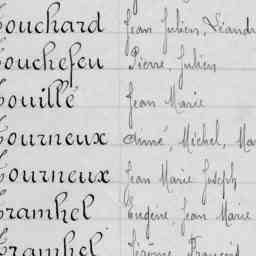 Touchard Jean Julien, Léandr
Touchefeu Pierre, Julien
Touillé Jean Marie
Tourneux Aimé, Michel, Ma
Tourneux Jean Marie Joseph
Tramhel Eugène, Jean Marie
Tramhel Jérôme François